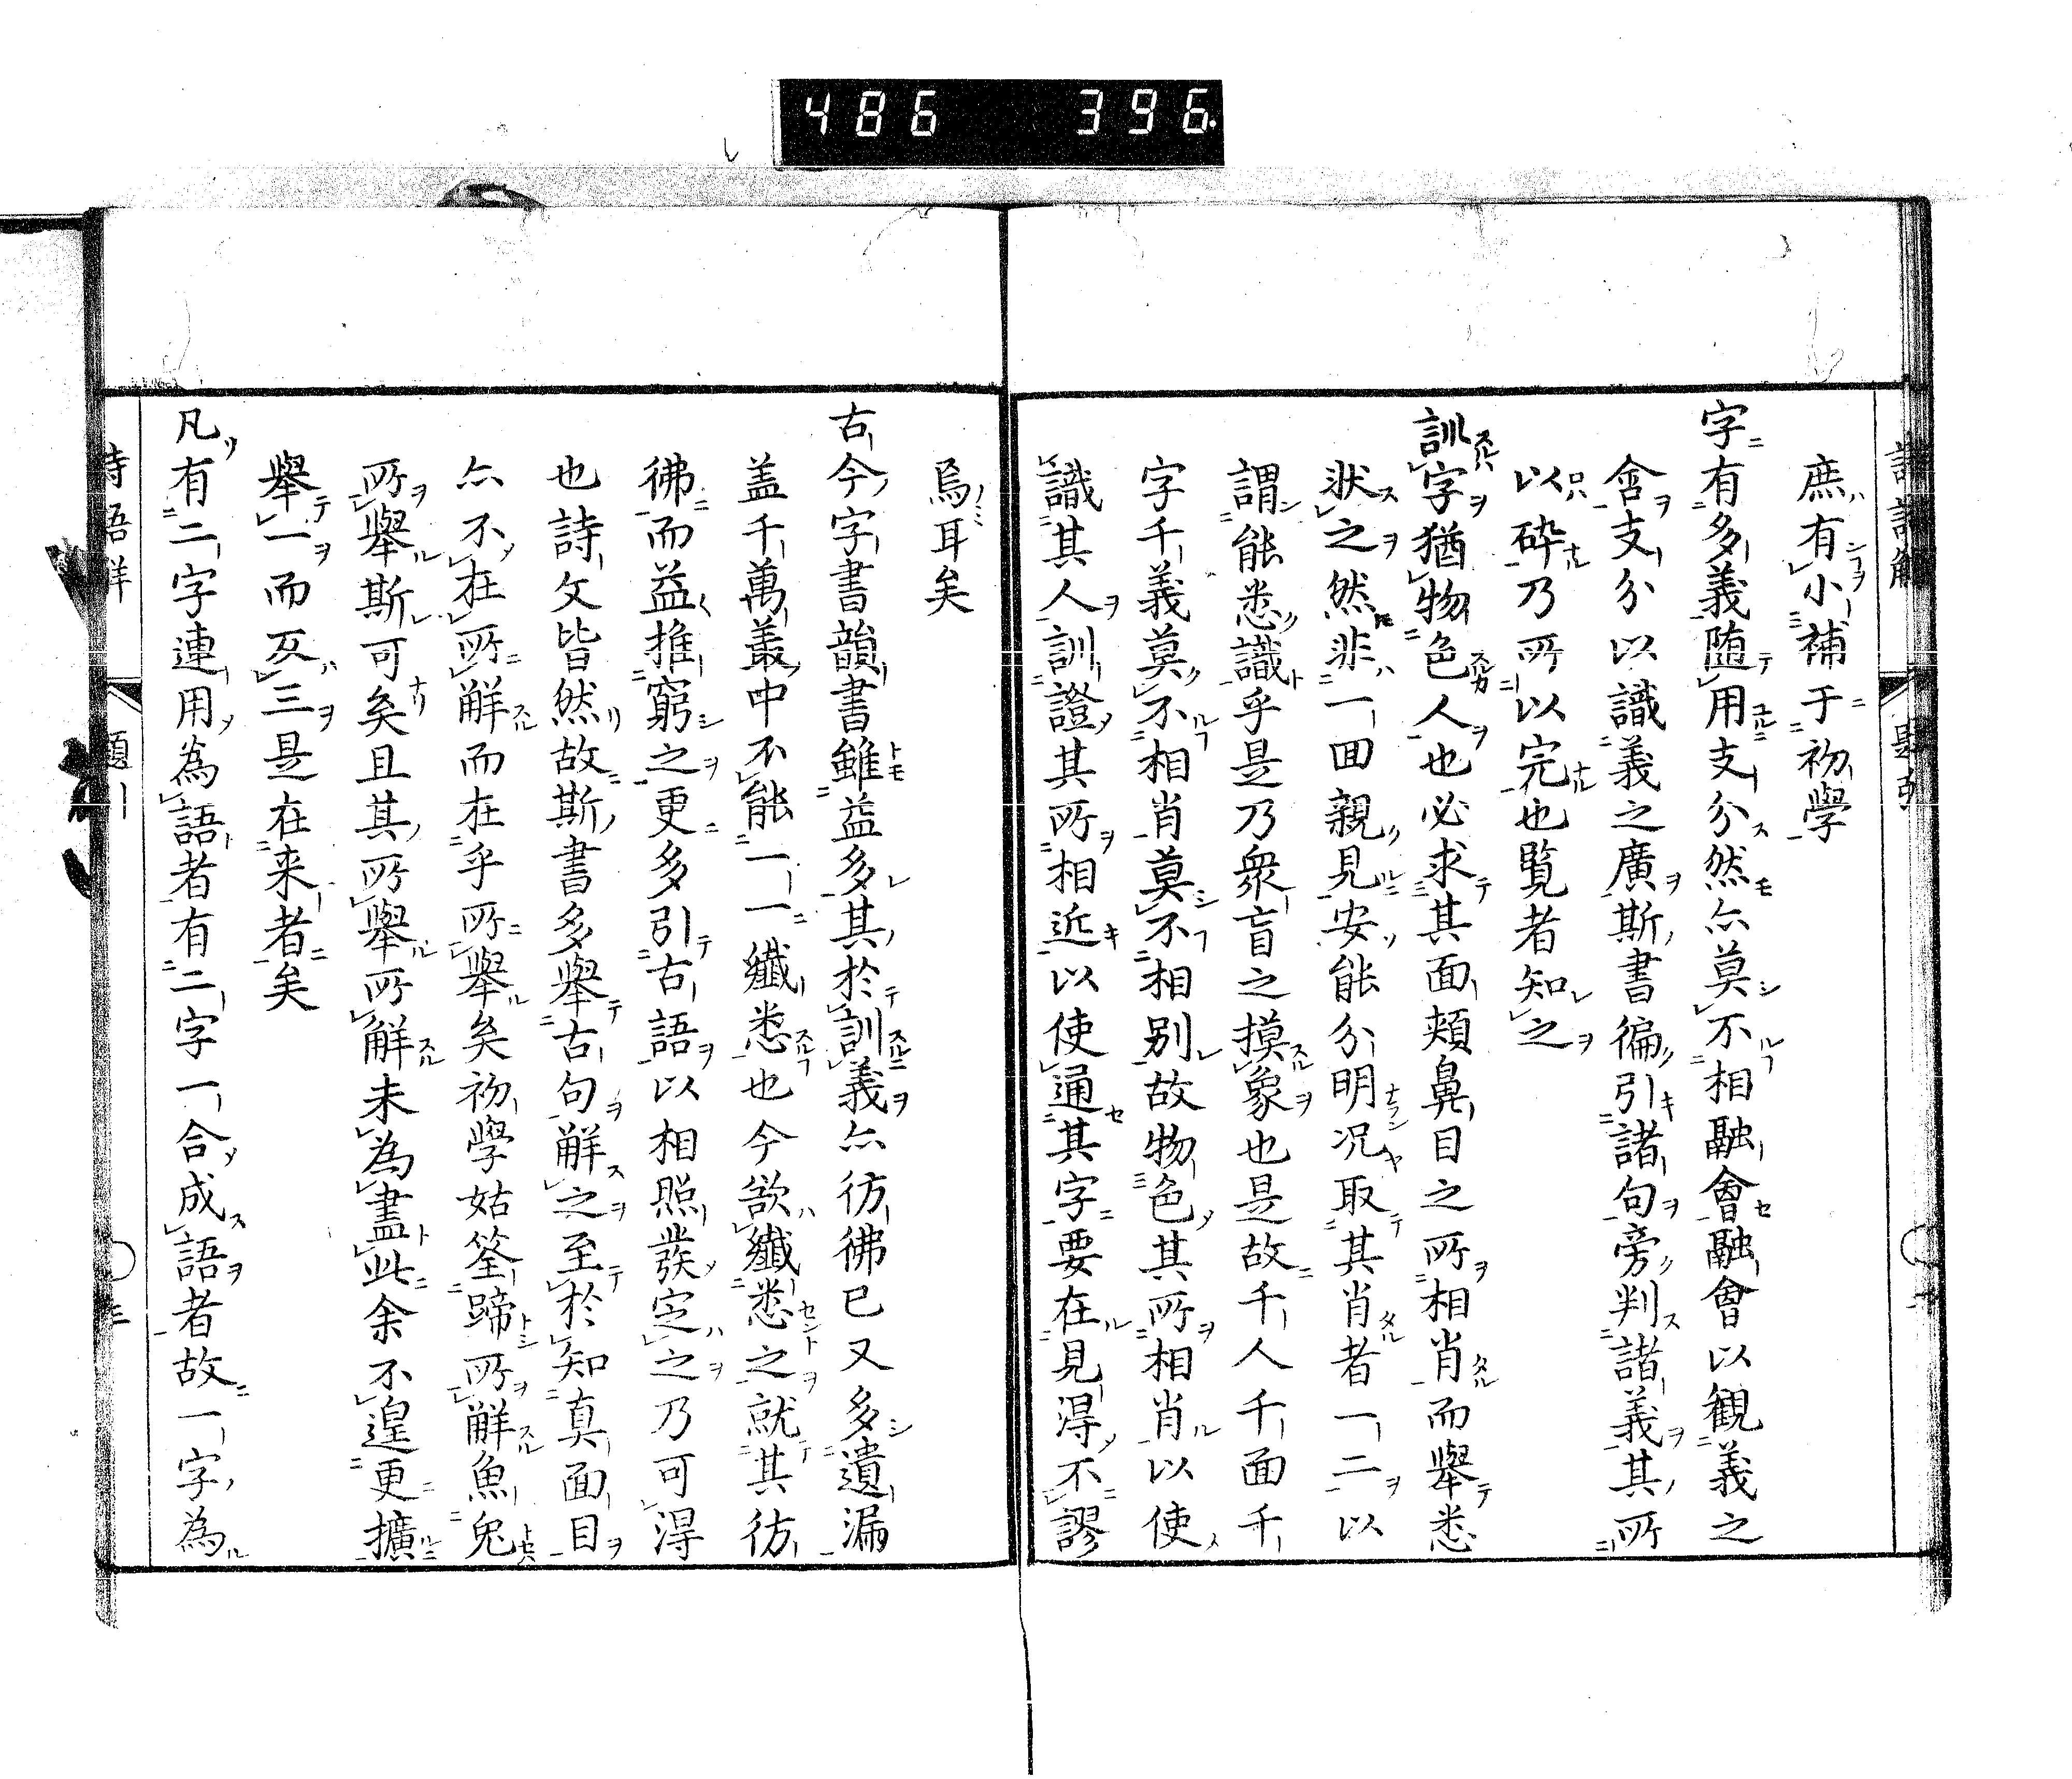 486 396
庶有小補于初學
字有多義隨用支分然亦莫不相融會融會以観義之
含支分以識義之廣斯書徧引諸句旁判諸義其所
以砕乃所以完也覧者知之
訓字猶物色人也必求其面頰鼻目之所相肖而舉悉
狀之然非一回親見安能分明况取其肖者一二以
謂能悉識乎是乃衆盲之摸象也是故千人千面千
字千義莫不相肖莫不相別故物色其所相肖以使
識其人訓證其所相近以使通其字要在見得不謬
烏耳矣
古今字書韻書雖益多其於訓義亦彷彿已又多遺漏
盖千萬叢中不能一一纖悉也今欲纖悉之就其彷
彿而益推窮之更多引古語以相照發定之乃可得
也詩文皆然故斯書多舉古句解之至於知真面目
亦不在所解而在乎所舉矣初學姑筌蹄所解魚兔
所舉斯可矣且其所舉所解未為盡此余不遑更擴
舉一而反三是在来者矣
凡有二字連用為語者有二字一合成語者故一字為
詩語解
題引